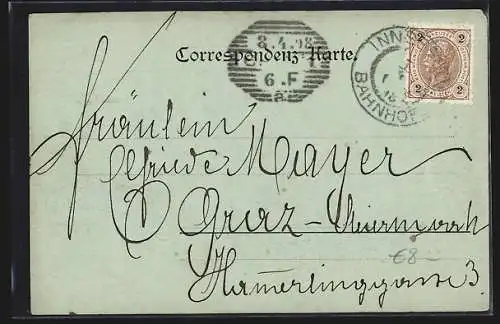 8.4.98
6.F
a
Correspondenz-Karte.
INNS
BAHNHOF
2 2
Fräulein
Elfriede Mayer
Graz-Steiermark
Hamerlinggasse 3.
€8-